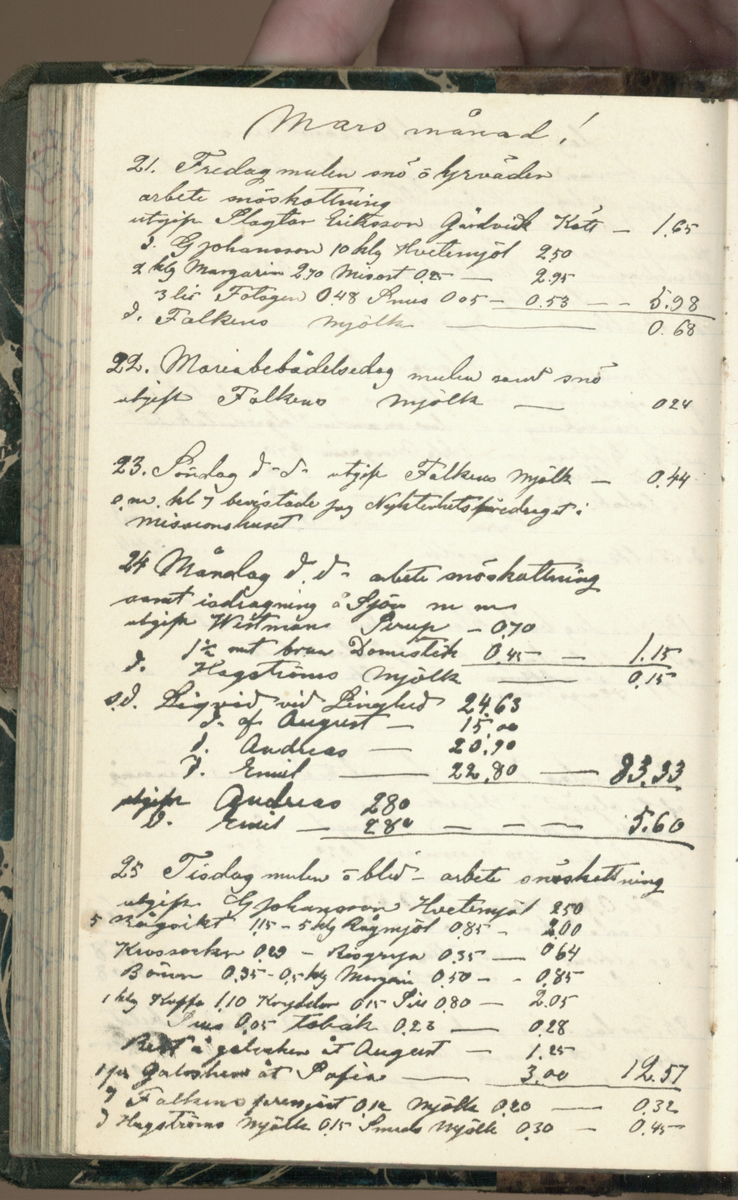 Mars månad!
21. Fredag mulen snö o Yrväder
arbete snöskottning
utgift Slagtar Eriksson Gärdvik Kött — 1,65
d. G Johansson 10 klg Hvetemjöl 2.50
klg Margarin 2.70 Misost 0.25 — 2.95
3 lir Fotogen 0.48 Snus 0.05 — 0.53 — - 5.98
d. Falkens mjölk — 0.68
22. Mariabebådelsedag mulen samt snö
utgift Falkens mjölk — 0 24
23. Söndag d - d - utgift Falkens mjölk — 0,44
e.m. kl 7 bevistade jag Nykterhetsföredraget i
missionshuset
24 Måndag d. d - arbete snöskottning
samt isdragning å Sjön m m
utgift Westmans Sirup — 0,70
1½ mt brun Domestik 0.45 — 1.15
d. Hagströms mjölk — 0,15
s.d. Liqvid vid Ljusglad 24.63
d. af August — 15,00
d. Andreas — 20,90
d. Emil — 22,80 — 83,33
utgift Andreas 2 80
d. Emil — 2 80 — — — 5.60
25 Tisdag mulen o blid — arbete snöskottning
utgift G Johansson Hvetemjöl 2 50
5 Rågsikt 1,15 - 5 klg Rågmjöl 0.85 - 2,00
Krossocker 0.29 - Risgryn 0.35 — 0 64
Bönor 0.35 - 0,5 klg Margarin 0,50 — - 0,85
1 klg Kaffe 1,10 Kryddor 0.15 0,80 — 2.05
Snus 0,05 tobak 0.23 — 0.28
Rest å galoscher åt August — 1.25
1 par Galoscher åt Sofia — 3.00 12.57
d Falkens 0.12 Mjölk 0.20 — 0.32
d Hagströms Mjölk 0.15 Smeds Mjölk 0,30 — 0,45